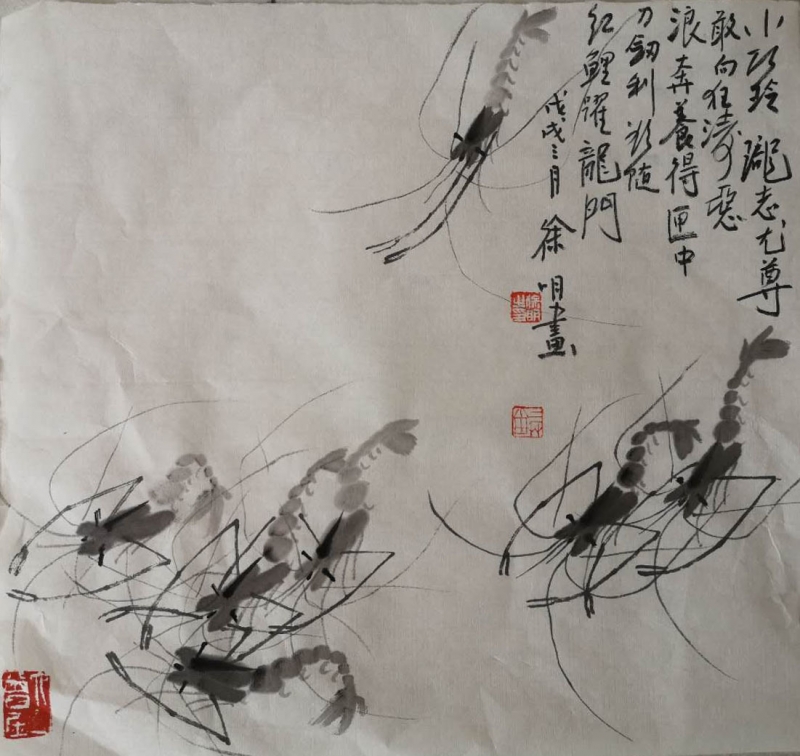 小巧玲瓏志尤尊
敢向狂濤惡
浪奔養得匣中
刀劍利欲随
紅鯉躍龍門
戊戌三月 徐明畫
徐明之印